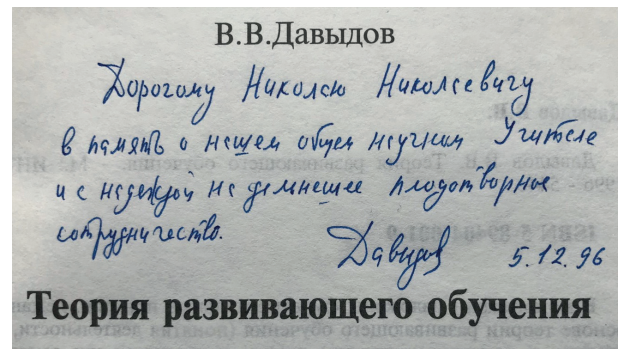 В.В.Давыдов
Дорогому Николаю Николаевичу
в память о нашем общем научном Учителе
и с надеждой на дальнейшее плодотворное
сотрудничество.
Давыдов 5.12.96
Теория развивающего обучения